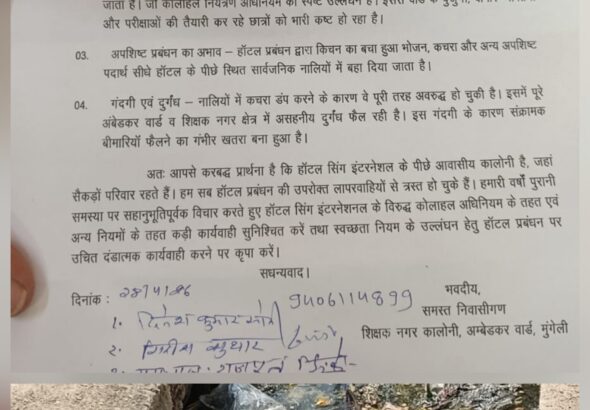 जाता है। जो कोलाहल नियंत्रण अधिनियम का स्पष्ट उल्लंघन है। इससे वार्ड के
और परीक्षाओं की तैयारी कर रहे छात्रों को भारी कष्ट हो रहा है।
03. अपशिष्ट प्रबंधन का अभाव – हॉटल प्रबंधन द्वारा किचन का बचा हुआ भोजन, कचरा और अन्य अपशिष्ट
पदार्थ सीधे हॉटल के पीछे स्थित सार्वजनिक नालियों में बहा दिया जाता है।
04. गंदगी एवं दुर्गंध – नालियों में कचरा डंप करने के कारण वे पूरी तरह अवरुद्ध हो चुकी है। इसमें पूरे
अंबेडकर वार्ड व शिक्षक नगर क्षेत्र में असहनीय दुर्गंध फैल रही है। इस गंदगी के कारण संक्रामक
बीमारियाँ फैलने का गंभीर खतरा बना हुआ है।
अतः आपसे करबद्ध प्रार्थना है कि हॉटल सिंग इंटरनेशल के पीछे आवासीय कालोनी है, जहां
सैकड़ों परिवार रहते हैं। हम सब हॉटल प्रबंधन की उपरोक्त लापरवाहियों से त्रस्त हो चुके हैं। हमारी वर्षों पुरानी
समस्या पर सहानुभूतिपूर्वक विचार करते हुए हॉटल सिंग इंटरनेशनल के विरुद्ध कोलाहल अधिनियम के तहत एवं
अन्य नियमों के तहत कड़ी कार्यवाही सुनिश्चित करें तथा स्वच्छता नियम के उल्लंघन हेतु हॉटल प्रबंधन पर
उचित दंडात्मक कार्यवाही करने पर कृपा करें।
सधन्यवाद।
दिनांक : 28/4/26 9406114899 भवदीय,
समस्त निवासीगण
शिक्षक नगर कालोनी, अम्बेडकर वार्ड, मुंगेली
1. दिनेश कुमार
2. गिरीश सुथार